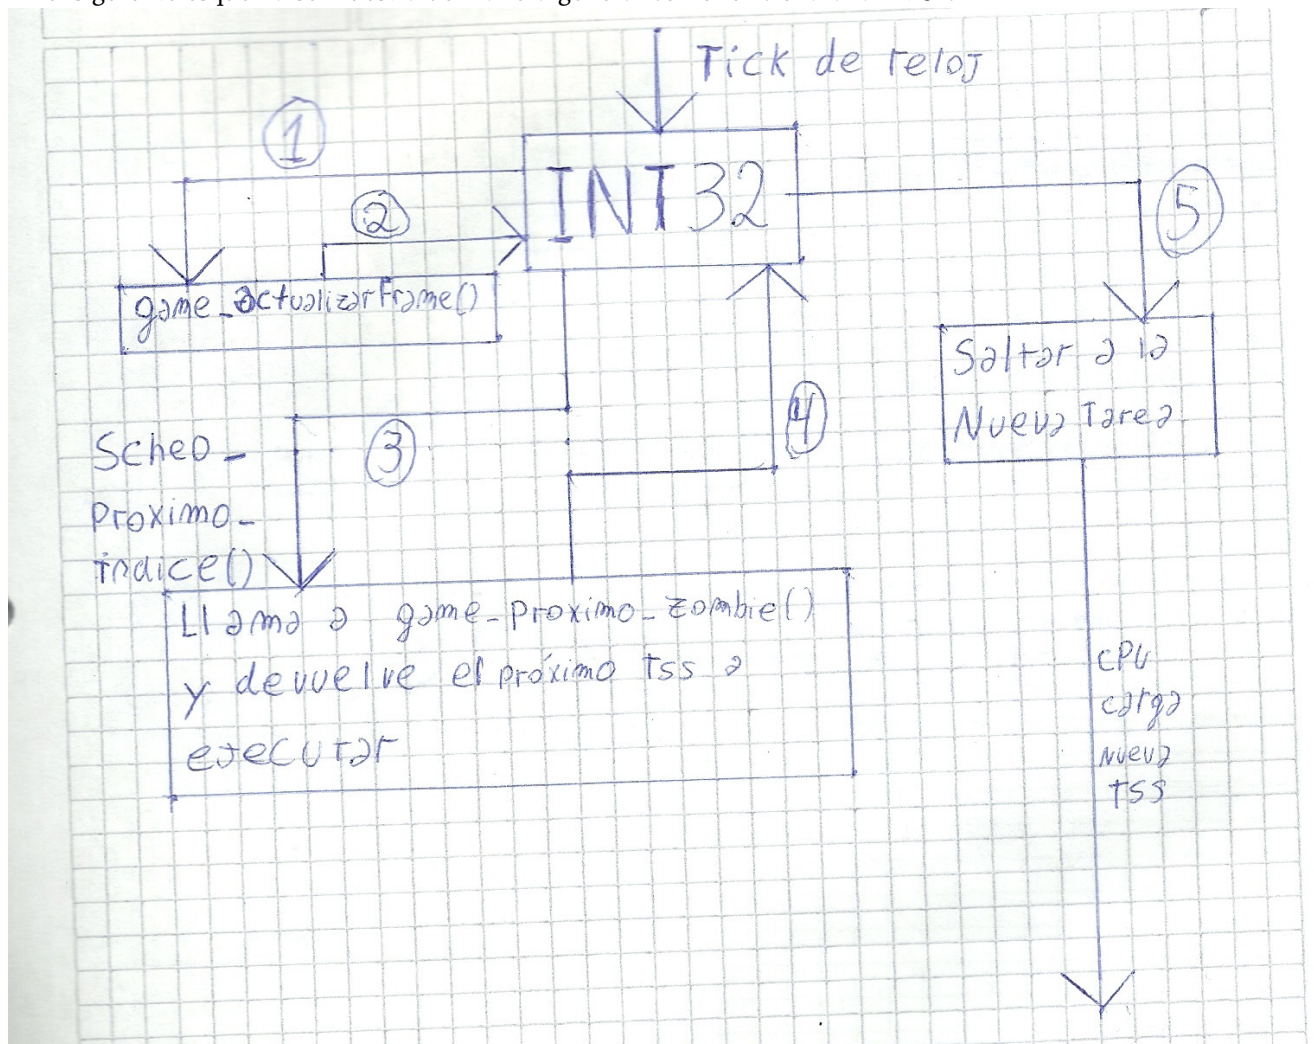 Tick de reloj
1
INT 32
2
5
game_actualizarFrame()
Saltar a la
Nueva Tarea
4
3
Sched_
Proximo_
indice()
Llama a game_proximo_zombie()
y devuelve el próximo tss a
ejecutar
CPU
carga
nueva
tss